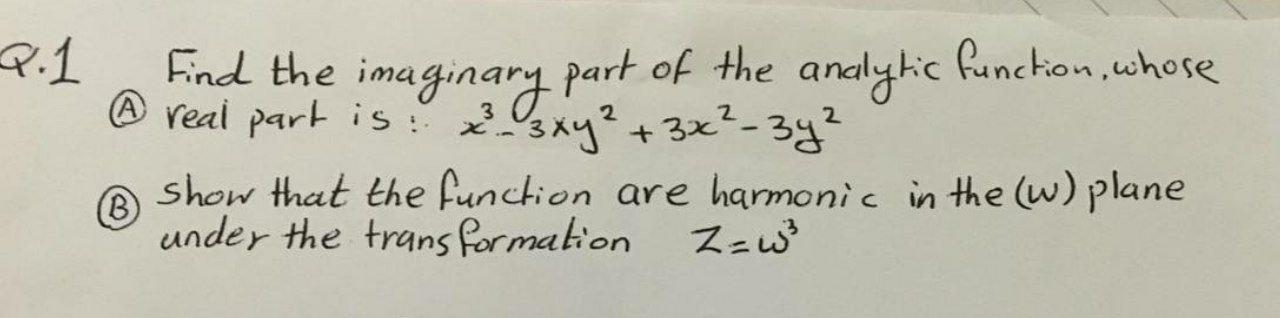 Q.1 Find the imaginary part of the analytic function, whose
Ⓐ real part is : x³ - 3xy² + 3x² - 3y²
Ⓑ show that the function are harmonic in the (w) plane
under the transformation Z = w³